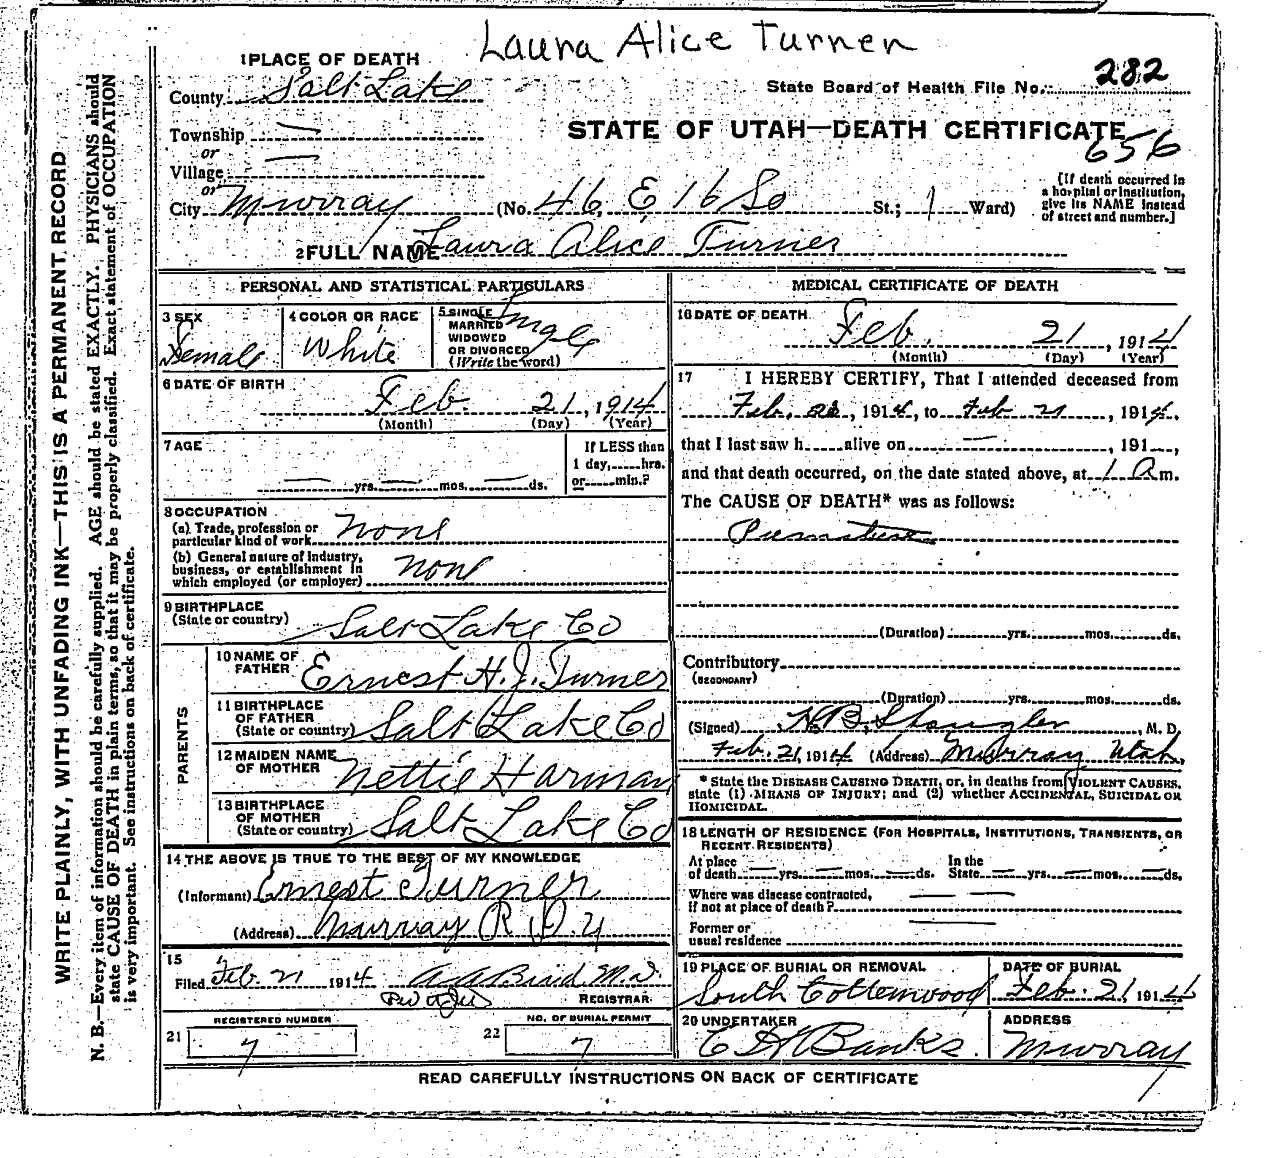 Laura Alice Turner
1 PLACE OF DEATH
County Salt Lake
State Board of Health File No. 282
Township —
or
STATE OF UTAH—DEATH CERTIFICATE
656
Village —
or
City Murray (No. 46 E 16 So St.; 1 Ward)
[If death occurred in
a hospital or institution,
give its NAME instead
of street and number.]
2 FULL NAME Laura Alice Turner
PERSONAL AND STATISTICAL PARTICULARS
3 SEX
Female
4 COLOR OR RACE
White
5 SINGLE
MARRIED
WIDOWED
OR DIVORCED
(Write the word)
Single
6 DATE OF BIRTH
Feb. 21, 1914
(Month) (Day) (Year)
7 AGE
— yrs. — mos. — ds.
If LESS than
1 day,.....hrs.
or.....min.?
8 OCCUPATION
(a) Trade, profession or
particular kind of work None
(b) General nature of Industry,
business, or establishment in
which employed (or employer) None
9 BIRTHPLACE
(State or country) Salt Lake Co
PARENTS
10 NAME OF
FATHER Ernest H.J. Turner
11 BIRTHPLACE
OF FATHER
(State or country) Salt Lake Co
12 MAIDEN NAME
OF MOTHER Nettie Harman
13 BIRTHPLACE
OF MOTHER
(State or country) Salt Lake Co
14 THE ABOVE IS TRUE TO THE BEST OF MY KNOWLEDGE
(Informant) Ernest Turner
(Address) Murray R.D. 4
15
Filed Feb. 21 1914
REGISTRAR
REGISTERED NUMBER
21 7
NO. OF BURIAL PERMIT
22 7
MEDICAL CERTIFICATE OF DEATH
16 DATE OF DEATH
Feb. 21, 1914
(Month) (Day) (Year)
17 I HEREBY CERTIFY, That I attended deceased from
Feb. 21, 1914, to Feb 21, 1914,
that I last saw h.....alive on — , 191—,
and that death occurred, on the date stated above, at 1 a m.
The CAUSE OF DEATH* was as follows:
(Duration) yrs. mos. ds.
Contributory
(SECONDARY)
(Duration) yrs. mos. ds.
(Signed) , M. D.
Feb. 21, 1914 (Address) Murray Utah.
* State the DISEASE CAUSING DEATH, or, in deaths from VIOLENT CAUSES,
state (1) MEANS OF INJURY; and (2) whether ACCIDENTAL, SUICIDAL OR
HOMICIDAL.
18 LENGTH OF RESIDENCE (FOR HOSPITALS, INSTITUTIONS, TRANSIENTS, OR
RECENT RESIDENTS)
At place
of death — yrs. — mos. — ds.
In the
State — yrs. — mos. — ds.
Where was disease contracted,
If not at place of death? — —
Former or
usual residence —
19 PLACE OF BURIAL OR REMOVAL
South Cottonwood
DATE OF BURIAL
Feb. 21 1914
20 UNDERTAKER
Banks.
ADDRESS
Murray
READ CAREFULLY INSTRUCTIONS ON BACK OF CERTIFICATE
WRITE PLAINLY, WITH UNFADING INK—THIS IS A PERMANENT RECORD
N. B.—Every item of information should be carefully supplied. AGE should be stated EXACTLY. PHYSICIANS should
state CAUSE OF DEATH in plain terms, so that it may be properly classified. Exact statement of OCCUPATION
is very important. See instructions on back of certificate.